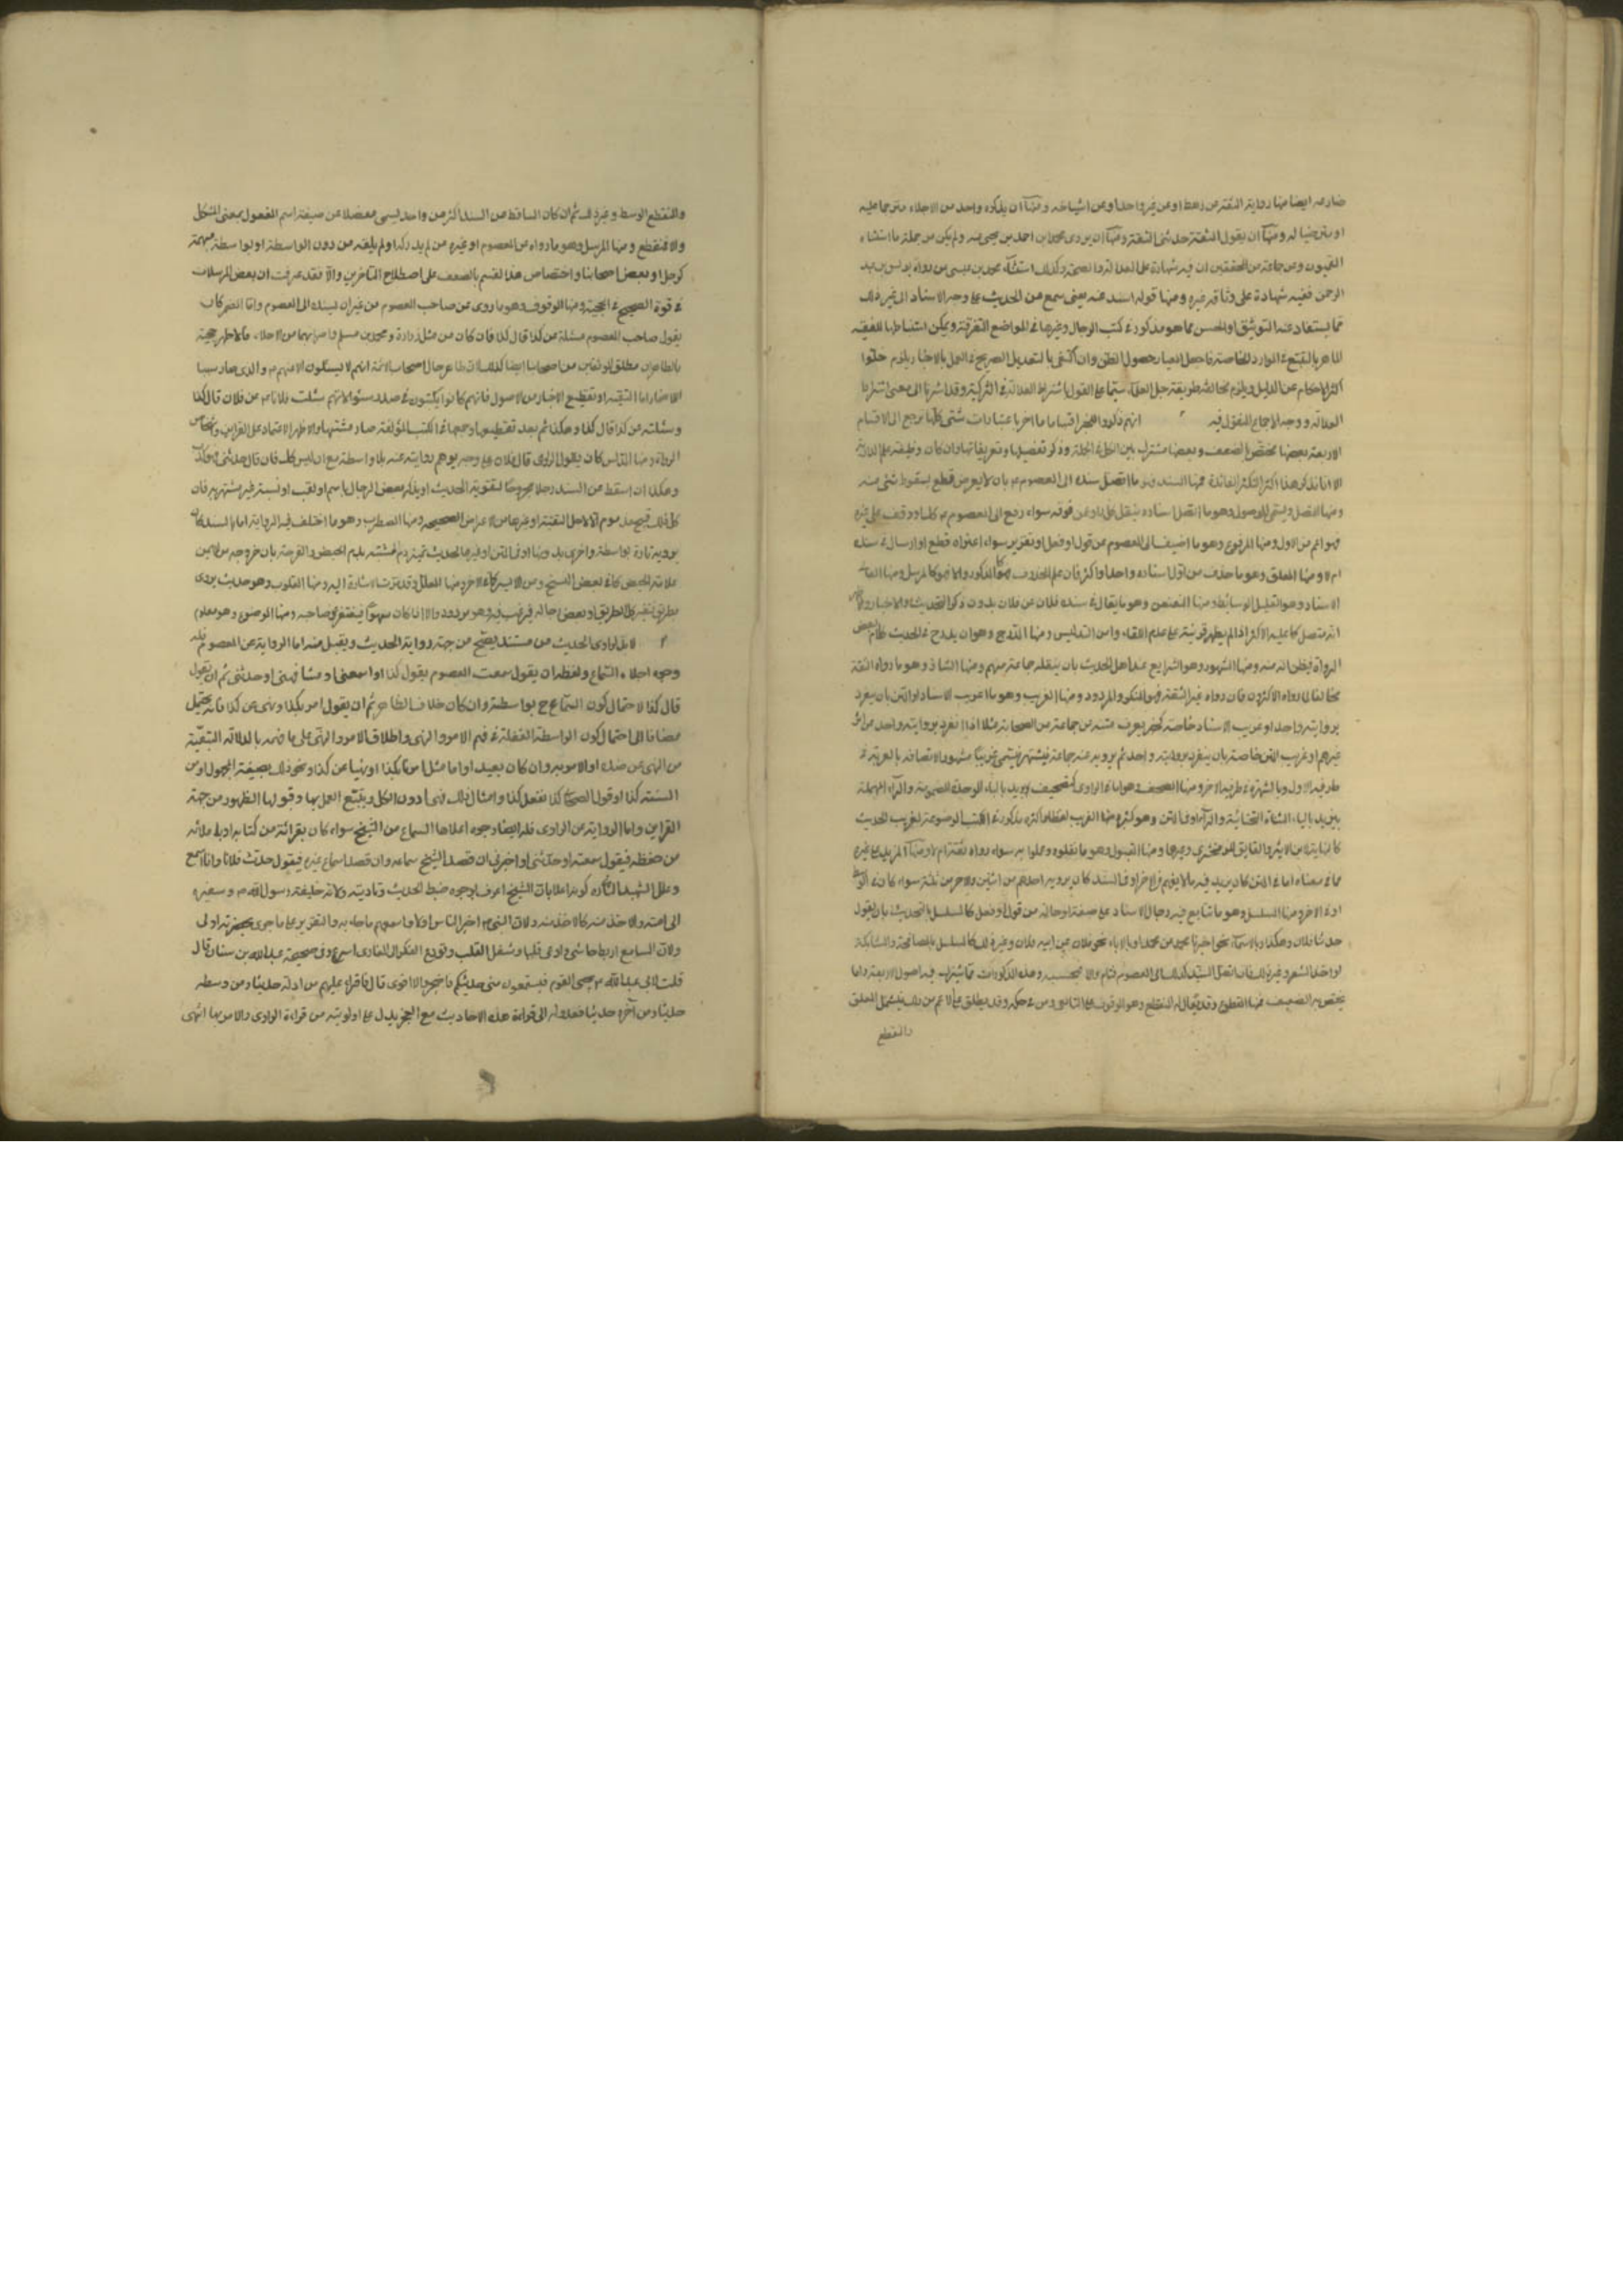 ومنها رواية الثقة عن رهط او عن غير واحد او عن اشياخه ومنها ان يذكره واحد من الاجلاء مترحما عليه
او مترضيا له ومنها ان يقول الثقة حدثنى الثقة ومنها ان يروى محمد بن احمد بن يحيى عنه ولم يكن من جملة ما استثناه
القميون وعن جماعة من المحققين ان فيه شهادة على العدالة وكذلك استثناء محمد بن عيسى من رواة يونس بن عبد
الرحمن ففيه شهادة على وثاقة غيره ومنها قوله اسند عنه يعنى سمع عنه الحديث على وجه الاسناد الى غير ذلك
مما يستفاد عنه التوثيق او الحسن مما هو مذكور فى كتب الرجال وغيرها فى المواضع المتفرقة ويمكن استنباطها للفقيه
الماهر بالتتبع فى الموارد الخاصة فاجعل المعيار حصول الظن وان اكتفى بالتعديل الصريح فى العمل بالاخبار يلزم خلو
اكثر الاحكام عن الدليل ويلزم مخالفة طريقة جل العلماء سيما على القول باشتراط العدالة فى التزكية وقد اشرنا الى معنى اشتراط
العدالة ووجه الاجماع المنقول فيه انهم ذكروا للخبر اقساما ما اخر باعتبارات شتى كلها ترجع الى الاقسام
الاربعة بعضها مختص بالضعيف وبعضها مشترك بين الكل فى الجملة وذكر تفصيلها وتعريفاتها وان كان وظيفة علم الدراية
الا انا نذكر هذا اكثرها لتكثر الفائدة فمنها المسند فهو ما اتصل سنده الى المعصوم ع بان لا يعرض قطع بسقوط شئ منه
ومنها المتصل ويسمى الموصول وهو ما اتصل اسناده بنقل كل راو عن فوقه سواء رفع الى المعصوم ع كذلك او وقف على غيره
فهو اعم من الاول ومنها المرفوع وهو ما اضيف الى المعصوم من قول او فعل او تقرير سواء اعتراه قطع او ارسال فى سنده
ام لا ومنها المعلق وهو ما حذف من اول اسناده واحد او اكثر فان علم المحذوف فهو كالمذكور والا فهو كالمرسل ومنها العالى
الاسناد وهو القليل الوسائط ومنها المعنعن وهو ما يقال فى سنده فلان عن فلان بدون ذكر التحديث والاخبار والاظهر
انه متصل كما عليه الاكثر اذا لم يظهر قرينة على عدم اللقاء وامن التدليس ومنها المدرج وهو ان يدرج فى الحديث كلام بعض
الرواة فيظن انه منه ومنها المشهور وهو الشايع عند اهل الحديث بان ينقله جماعة منهم ومنها الشاذ وهو ما رواه الثقة
مخالفا لما رواه الاكثرون فان رواه غير الثقة فهو المنكر والمردود ومنها الغريب وهو ما غريب الاسناد والمتن بان يتفرد
بروايته واحد او غريب الاسناد خاصة كخبر يعرف متنه من جماعة من الصحابة مثلا اذا انفرد بروايته واحد عن اخر
غيرهم او غريب المتن خاصة بان يتفرد بروايته واحد ثم يرويه عنه جماعة فيشتهر فيسمى غريبا مشهورا لاتصافه بالغرابة فى
طرفه الاول وبالشهرة فى طرفه الاخر ومنها المصحف وهو اما فى الراوى كتصحيف بريد بالباء الموحدة المضمومة والراء المهملة
بيزيد بالياء المثناة التحتانية والزاء او فى المتن وهو كثير ومنها الغريب لفظا واكثره مذكور فى الكتب الموضوعة لغريب الحديث
كالنهاية لابن الاثير والفايق للزمخشرى وغيرها ومنها المقبول وهو ما نقلوه وعملوا به سواء رواه ثقة ام لا ومنها المزيد على غيره
مما فى معناه اما فى المتن كان يزيد فيه ما لا يفهم فى الاخر او فى السند كان يرويه احدهم من اثنين والاخر من ثلثة سواء كان فى الوسط
او فى الاخر ومنها المسلسل وهو ما تتابع فيه رجال الاسناد على صفة او حالة من قول او فعل كالمسلسل بالتحديث بان يقول
حدثنا فلان وهكذا وبالاسماء نحو اخبرنا محمد عن محمد او بالاباء نحو فلان عن ابيه فلان وغير ذلك كالمسلسل بالمصافحة والمشابكة
واخذ الشعر وغير ذلك فان اتصل السند كذلك الى المعصوم فتام والا فبحسبه وهذه المذكورات مما يشترك فيه اصول الاربعة واما
يختص به الضعيف فمنها المقطوع وقد يقال له المنقطع وهو الموقوف على التابعى ومن فى حكمه وقد يطلق على الاعم من ذلك فيشمل المعلق
والمنقطع
والمنقطع الوسط وغير ذلك ثم ان كان الساقط من السند اكثر من واحد يسمى معضلا على صيغة اسم المفعول بمعنى المشكل
والا فمنقطع ومنها المرسل وهو ما رواه عن المعصوم او غيره من لم يدركه او لم يلقه من دون الواسطة او بواسطة مبهمة
كرجل او بعض اصحابنا واختصاص هذا القسم بالضعف على اصطلاح المتاخرين والا فقد عرفت ان بعض المرسلات
فى قوة الصحيح فى الحجية ومنها الموقوف وهو ما روى عن صاحب المعصوم من غير ان يسنده الى المعصوم واما المضمر كان
يقول صاحب المعصوم سئلته عن كذا قال كذا فان كان من مثل زرارة ومحمد بن مسلم واضرابهما من الاجلاء فالاظهر حجيته
بل الظاهر ان مطلق الموثقين من اصحابنا ايضا كذلك لان ظاهر حال اصحاب الائمة انهم لا يسئلون الا عنهم ع والذى صار سببا
للاضمار اما التقية او تقطيع الاخبار من الاصول فانهم كانوا يكتبون فى صدر سؤالاتهم سئلت فلانا ع عن فلان قال كذا
وسئلته عن كذا قال كذا وهكذا ثم بعد تقطيعها وجمعها فى الكتب المؤلفة صار مشتبها والاظهر الاعتماد على القراين واشخاص
الرواة ومنها المدلس كان يقول الراوى قال فلان على وجه يوهم روايته عنه بلا واسطة مع انه ليس كذلك فان قال حدثنى فهو كذب
وهكذا ان اسقط من السند رجلا مجروحا لتقوية الحديث او يذكر بعض الرجال باسم او لقب او نسبة غير مشتهر به فان
كل ذلك قبيح مذموم الا لاجل التقية او غيرها من الاغراض الصحيحة ومنها المضطرب وهو ما اختلف فيه الرواية اما بالسند كان
يرويه تارة بواسطة واخرى بدونها او فى المتن كحديث تميز دم المشتبه بدم الحيض والقرحة بان خروجه من الايمن
علامة الحيض كما فى بعض النسخ ومن الايسر كما فى الاخر ومنها المعلل وقد مرت الاشارة اليه ومنها المقلوب وهو حديث يروى
بطريق فيغير كل الطريق او بعض رجاله ليرغب فيه وهو مردود الا اذا كان سهوا فيغتفر من صاحبه ومنها الموضوع وهو معلوم
لا بد لراوى الحديث من مستند يصح من جهته رواية الحديث ويقبل منه اما الرواية عن المعصوم فله
وجوه اعلاه السماع ولفظه ان يقول سمعت المعصوم يقول كذا او اسمعنى او شافهنى او حدثنى ثم ان يقول
قال كذا لاحتمال كون السماع ح بواسطة وان كان خلاف الظاهر ثم ان يقول امر بكذا ونهى عن كذا فانه يحتمل
مضافا الى احتمال كون الواسطة الغفلة فى فهم الامر والنهى واطلاق الامر والنهى على ما فهمه بالدلالة التبعية
من النهى عن ضده او الامر به وان كان بعيدا واما مثل امرنا بكذا او نهينا عن كذا ونحو ذلك بصيغة المجهول او من
السنة كذا او قول الصحابى كنا نفعل كذا وامثال ذلك فهى ادون الكل ويتبع العمل بها وقبولها الظهور من جهة
القراين واما الرواية عن الراوى فله ايضا وجوه اعلاها السماع من الشيخ سواء كان بقرائة من كتابه او باملائه
من حفظه فيقول سمعته او حدثنى او اخبرنى ان قصد الشيخ سماعه وان قصد اسماع غيره فيقول حدث فلانا وانا اسمع
وعلل الشهيد الثانى ره كونه اعلا بان الشيخ اعرف بوجوه ضبط الحديث وتاديته ولانه خليفة رسول الله ص وسفيره
الى امته والاخذ منه كالاخذ منه ولان النبى ص اخبر الناس اولا واسمعهم ما جاء به والتقرير على ما جرى بحضرته اولى
ولان السامع اربط جاشا واوعى قلبا وشغل القلب وتوزع الفكر الى القارى اسرع وفى صحيحة عبد الله بن سنان قال
قلت لابى عبد الله ع يجئ القوم فيستمعون منى حديثكم فاضجر ولا اقوى قال فاقرا عليهم من اوله حديثا ومن وسطه
حديثا ومن آخره حديثا فعدوله الى قراءة هذه الاحاديث مع العجز يدل على اولويته من قراءة الراوى والا مر بها انتهى